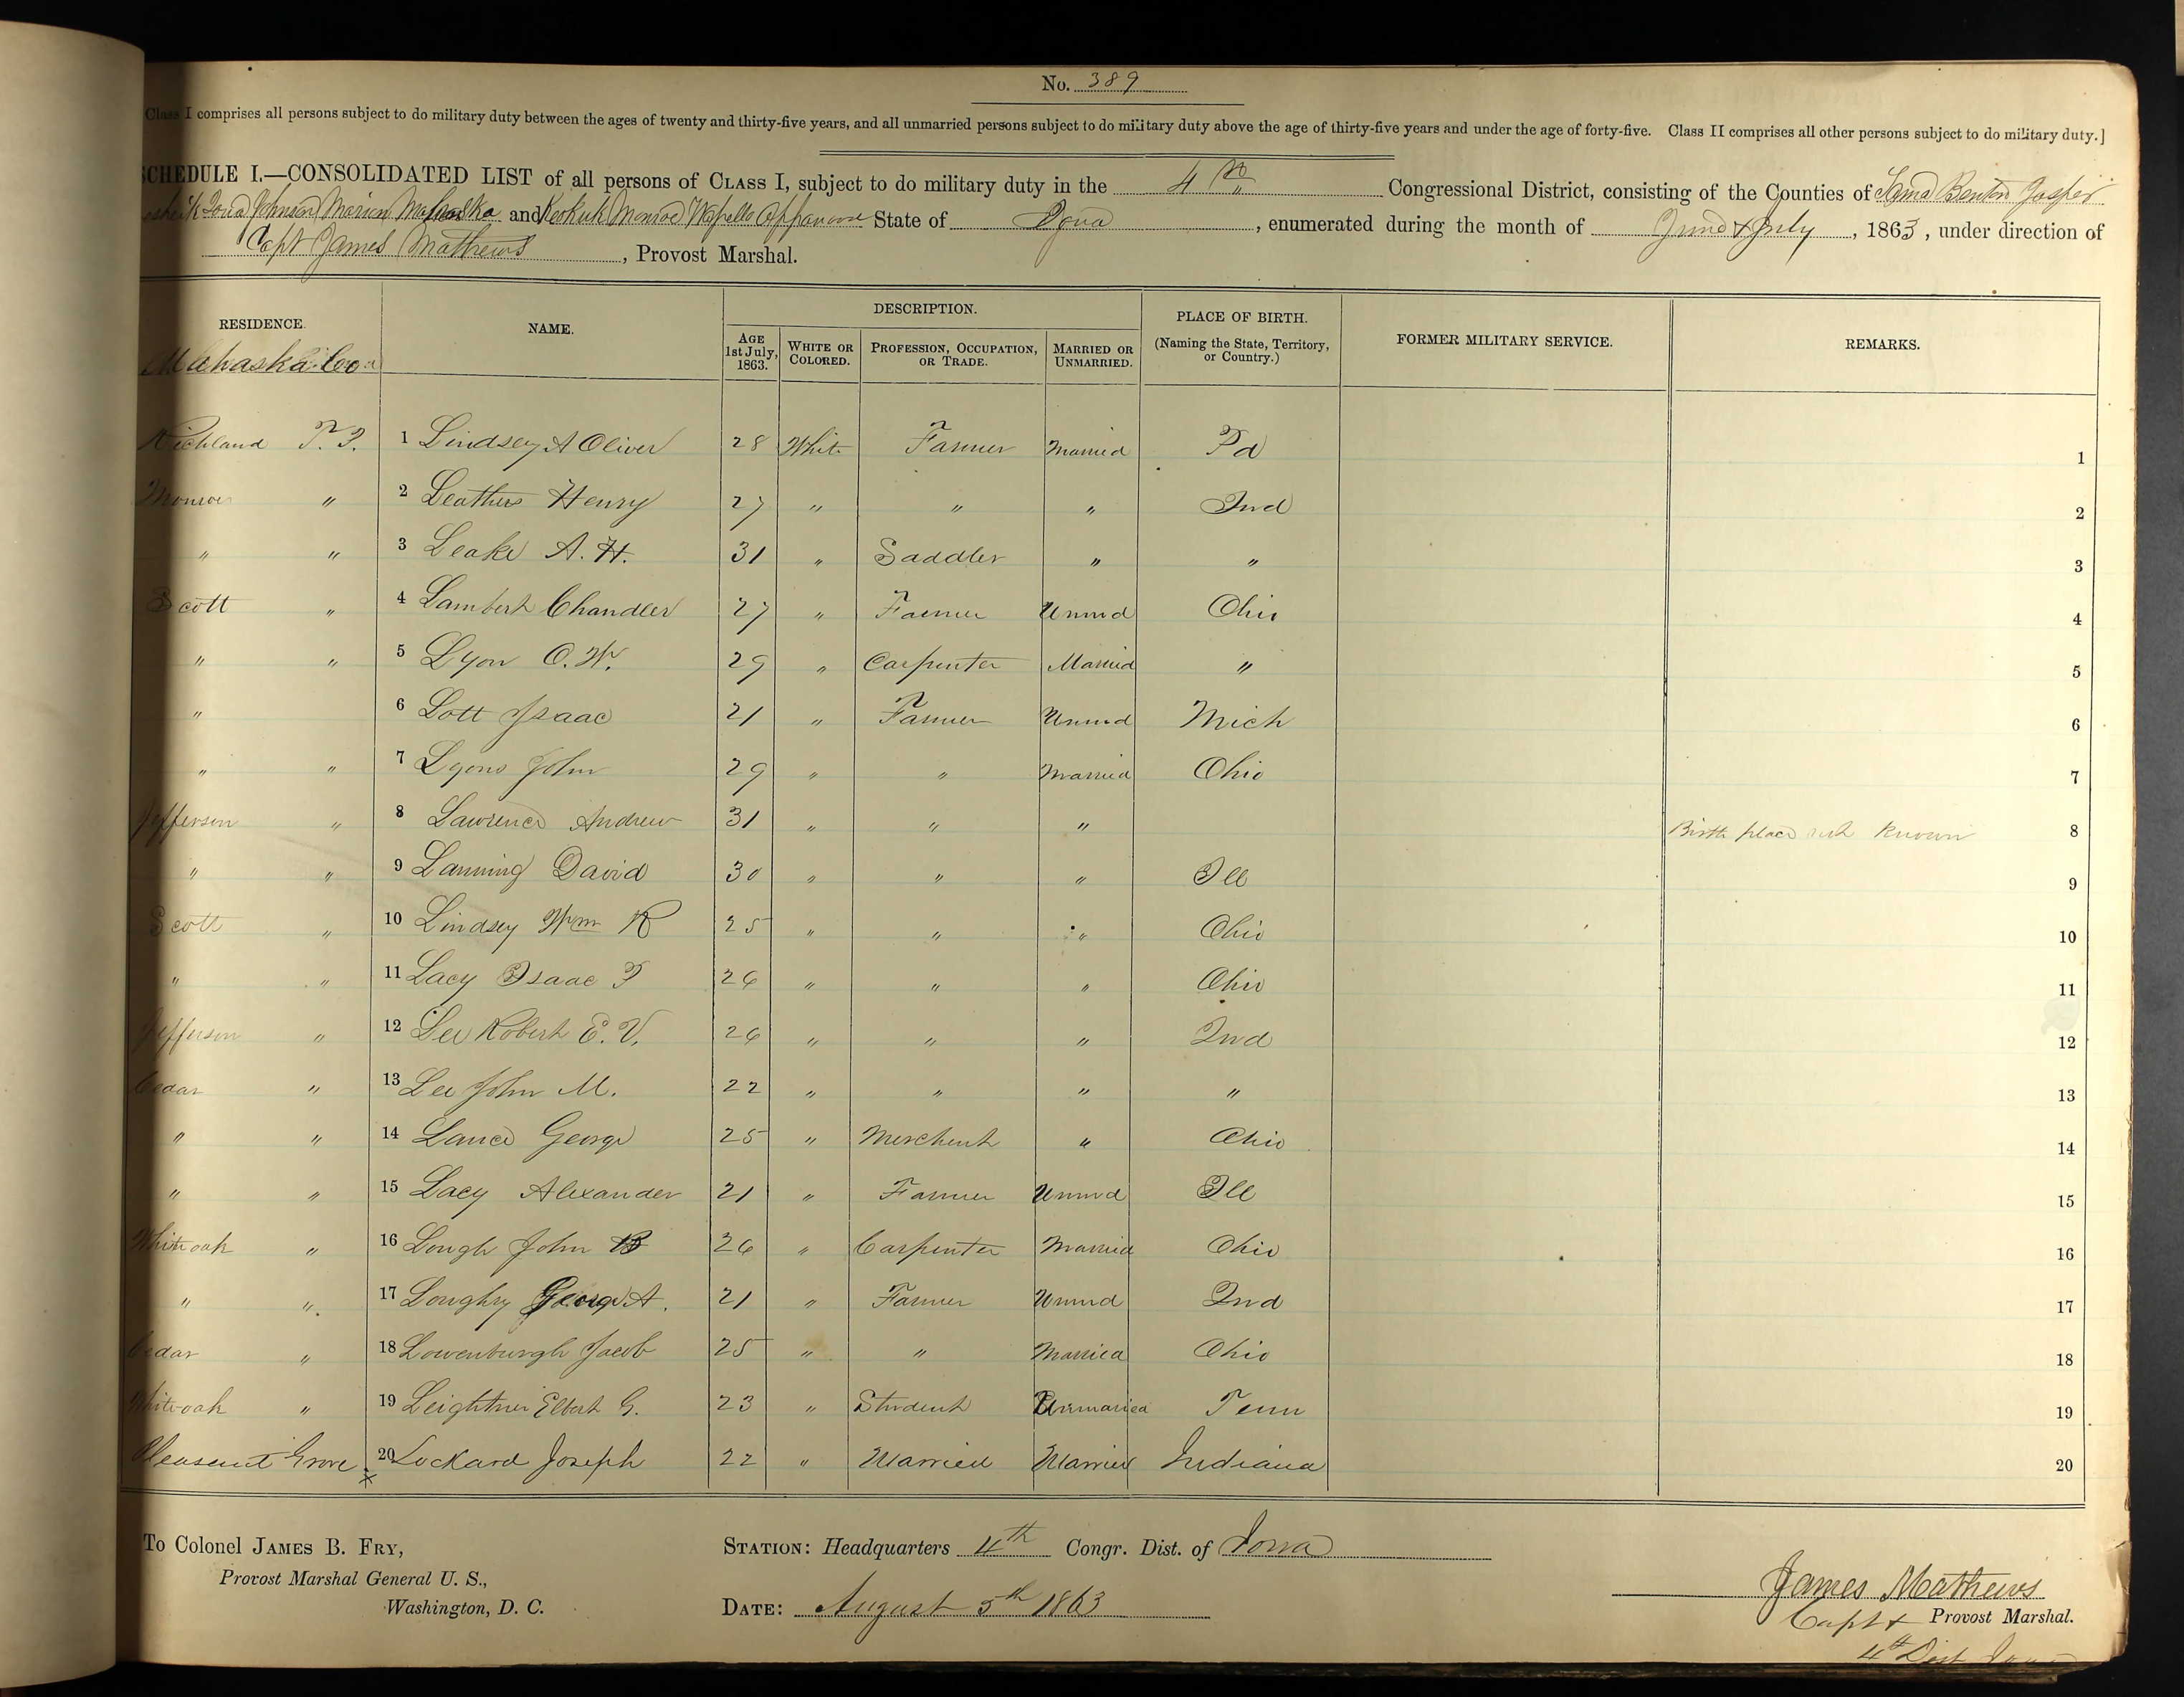 No. 389
Class I comprises all persons subject to do military duty between the ages of twenty and thirty-five years, and all unmarried persons subject to do military duty above the age of thirty-five years and under the age of forty-five. Class II comprises all other persons subject to do military duty.]
SCHEDULE I.—CONSOLIDATED LIST of all persons of CLASS I, subject to do military duty in the 4th Congressional District, consisting of the Counties of Tama Benton Jasper
Iowa Johnson Marion Mahaska and Keokuk Monroe Wapello Appanoose State of Iowa, enumerated during the month of June & July, 1863, under direction of
Capt James Mathews, Provost Marshal.
RESIDENCE. NAME. DESCRIPTION. PLACE OF BIRTH. (Naming the State, Territory, or Country.) FORMER MILITARY SERVICE. REMARKS.
AGE 1st July, 1863. WHITE OR COLORED. PROFESSION, OCCUPATION, OR TRADE. MARRIED OR UNMARRIED.
Mahaska Co
Richland T.P. 1 Lindsey A Oliver 28 White Farmer Married Pa 1
Monroe " 2 Leathers Henry 27 " " " Ind 2
" " 3 Leake A. H. 31 " Saddler " " 3
Scott " 4 Lambert Chandler 27 " Farmer Unmd Ohio 4
" " 5 Lyon O. W. 29 " Carpenter Married " 5
" 6 Lott Isaac 21 " Farmer Unmd Mich 6
" " 7 Lyons John 29 " " Married Ohio 7
Jefferson " 8 Lawrence Andrew 31 " " " Birth place not Known 8
" " 9 Lanning David 30 " " " Ill 9
Scott " 10 Lindsey Wm R 25 " " " Ohio 10
" " 11 Lacy Isaac T 26 " " " Ohio 11
Jefferson " 12 Lee Robert E. V. 26 " " " Ind 12
Cedar " 13 Lee John M. 22 " " " " 13
" " 14 Lance George 25 " Merchent " Ohio 14
" " 15 Lacy Alexander 21 " Farmer Unmd Ill 15
White oak " 16 Lough John B 26 " Carpenter Married Ohio 16
" " 17 Loughry George A. 21 " Farmer Unmd Ind 17
Cedar " 18 Lowenburgh Jacob 25 " " Married Ohio 18
White oak " 19 Leightner Elbert G. 23 " Student Unmaried Tenn 19
Pleasent Grove x 20 Lockard Joseph 22 " Married Married Indiana 20
To Colonel JAMES B. FRY,
Provost Marshal General U. S.,
Washington, D. C.
STATION: Headquarters 4th Congr. Dist. of Iowa
DATE: August 5th 1863
James Mathews
Capt & Provost Marshal.
4th Dist Iowa